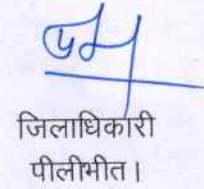 जिलाधिकारी
पीलीभीत।